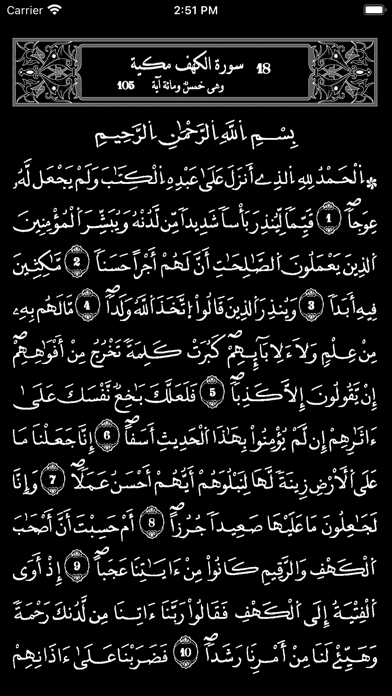 Carrier 2:51 PM
18 سورة الكهف مكية
وهى خمس ومائة آية 105
بِسْمِ اِ۬للَّهِ اِ۬لرَّحْمَٰنِ اِ۬لرَّحِيمِ
۞ اَ۬لْحَمْدُ لِلهِ اِ۬لذِےٓ أَنزَلَ عَلَىٰ عَبْدِهِ اِ۬لْكِتَٰبَ وَلَمْ يَجْعَل لَّهُۥ
عِوَجاٗۖ 1 قَيِّماٗ لِّيُنذِرَ بَأْساٗ شَدِيداٗ مِّن لَّدُنْهُ وَيُبَشِّرَ اَ۬لْمُؤْمِنِينَ
اَ۬لذِينَ يَعْمَلُونَ اَ۬لصَّٰلِحَٰتِ أَنَّ لَهُمْ أَجْراً حَسَناٗ 2 مَّٰكِثِينَ
فِيهِ أَبَداٗ 3 وَيُنذِرَ اَ۬لذِينَ قَالُواْ اُ۪تَّخَذَ اَ۬للَّهُ وَلَداٗۖ 4 مَّا لَهُم بِهِۦ
مِنْ عِلْمٖ وَلَا ءَلِابَآئِهِمْۖ كَبُرَتْ كَلِمَةٗ تَخْرُجُ مِنْ أَفْوَٰهِهِمُۥٓۖ
إِنْ يَّقُولُونَ إِلَّا كَذِباٗۖ 5 فَلَعَلَّكَ بَٰخِعٞ نَّفْسَكَ عَلَىٰٓ
ءَاثَٰرِهِمُۥٓ إِن لَّمْ يُؤْمِنُواْ بِهَٰذَا اَ۬لْحَدِيثِ أَسَفاًۖ 6 اِنَّا جَعَلْنَا مَا
عَلَى اَ۬لَارْضِ زِينَةٗ لَّهَا لِنَبْلُوَهُمُۥٓ أَيُّهُمُۥٓ أَحْسَنُ عَمَلاٗۖ 7 وَإِنَّا
لَجَٰعِلُونَ مَا عَلَيْهَا صَعِيداٗ جُرُزاًۖ 8 اَمْ حَسِبْتَ أَنَّ أَصْحَٰبَ
اَ۬لْكَهْفِ وَالرَّقِيمِ كَانُواْ مِنَ اٰيَٰتِنَا عَجَباًۖ 9 اِذْ أَوَى
اَ۬لْفِتْيَةُ إِلَى اَ۬لْكَهْفِ فَقَالُواْ رَبَّنَآ ءَاتِنَا مِن لَّدُنكَ رَحْمَةٗ
وَهَيِّۓْ لَنَا مِنَ اَمْرِنَا رَشَداٗۖ 10 فَضَرَبْنَا عَلَىٰٓ ءَاذَانِهِمْ